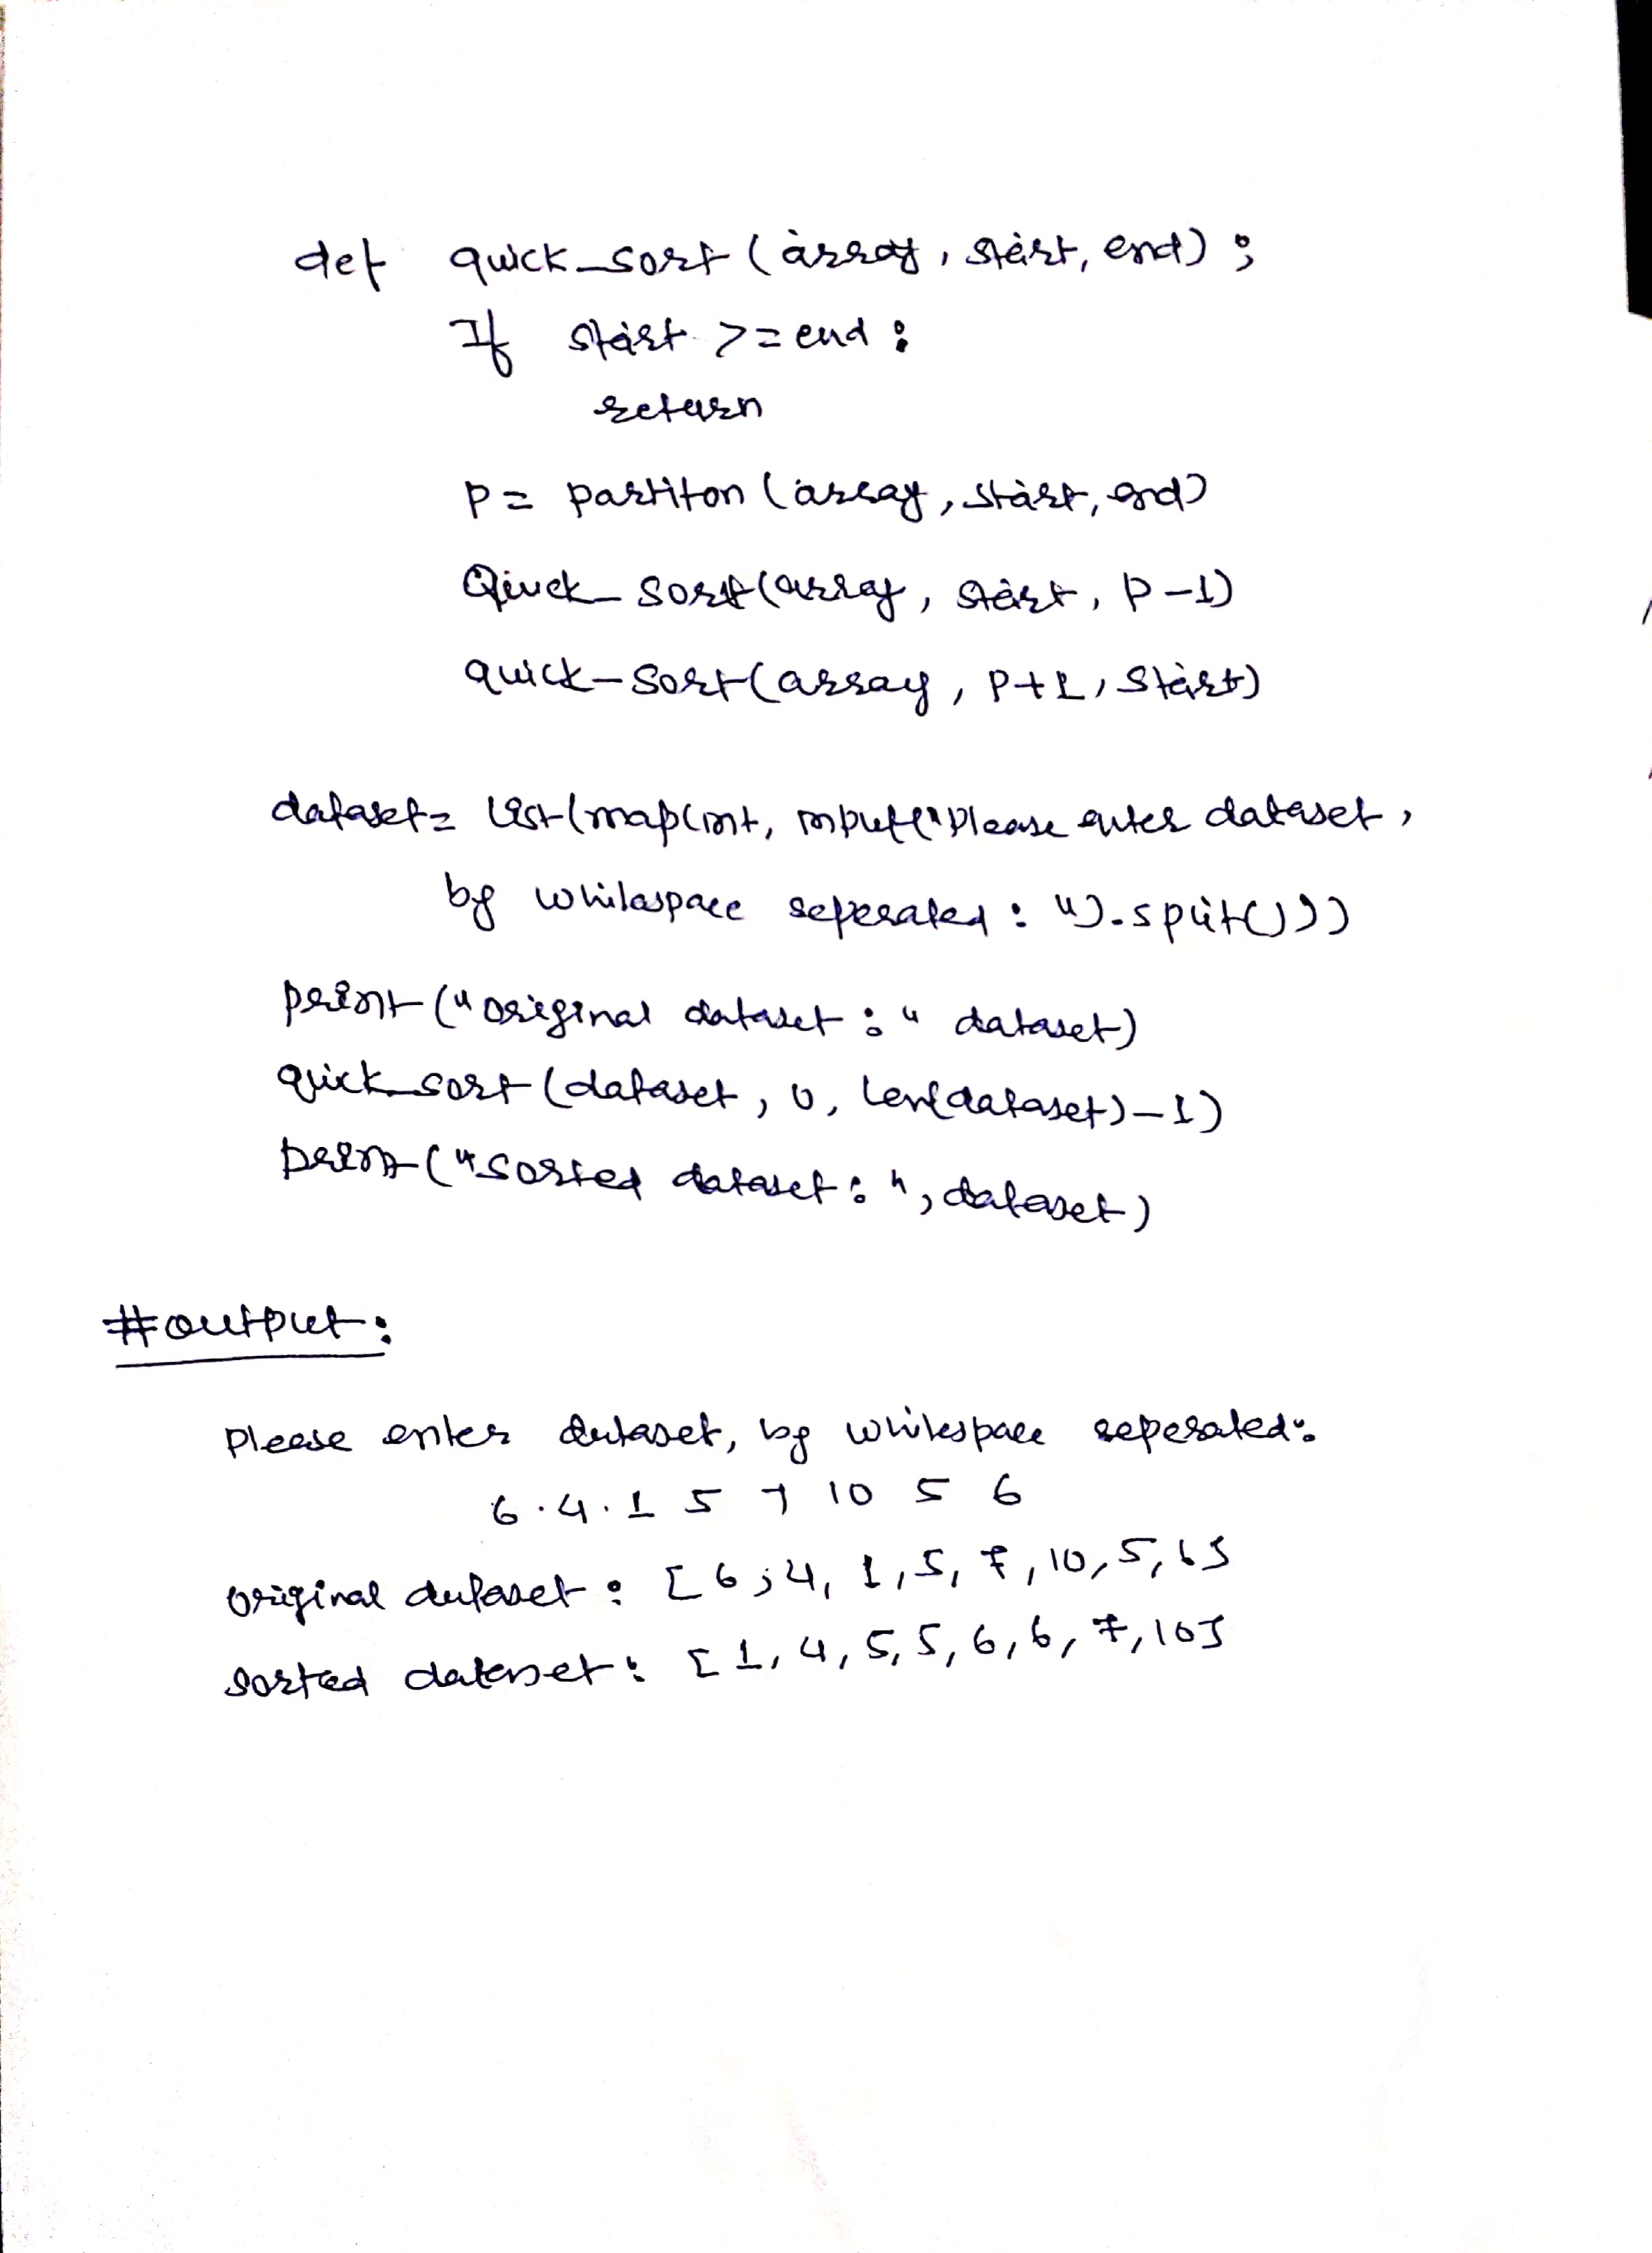 def quick_sort (array, start, end) ;
If start >= end :
return
p = partiton (array, start, end)
Qiuck_ sort(array, start, p-1)
quick-sort(array, p+1, start)
dataset= list(map(int, input("please enter dataset,
by whilespace seperated : ").split()))
print ("original dataset : " dataset)
quick_sort (dataset, 0, len(dataset)-1)
print ("sorted dataset : ", dataset)
#output:
please enter dutaset, by whilespace seperated:
6 . 4 . 1 5 7 10 5 6
original dutaset : [6 ; 4, 1, 5, 7, 10, 5, 6]
sorted dataset : [1, 4, 5, 5, 6, 6, 7, 10]